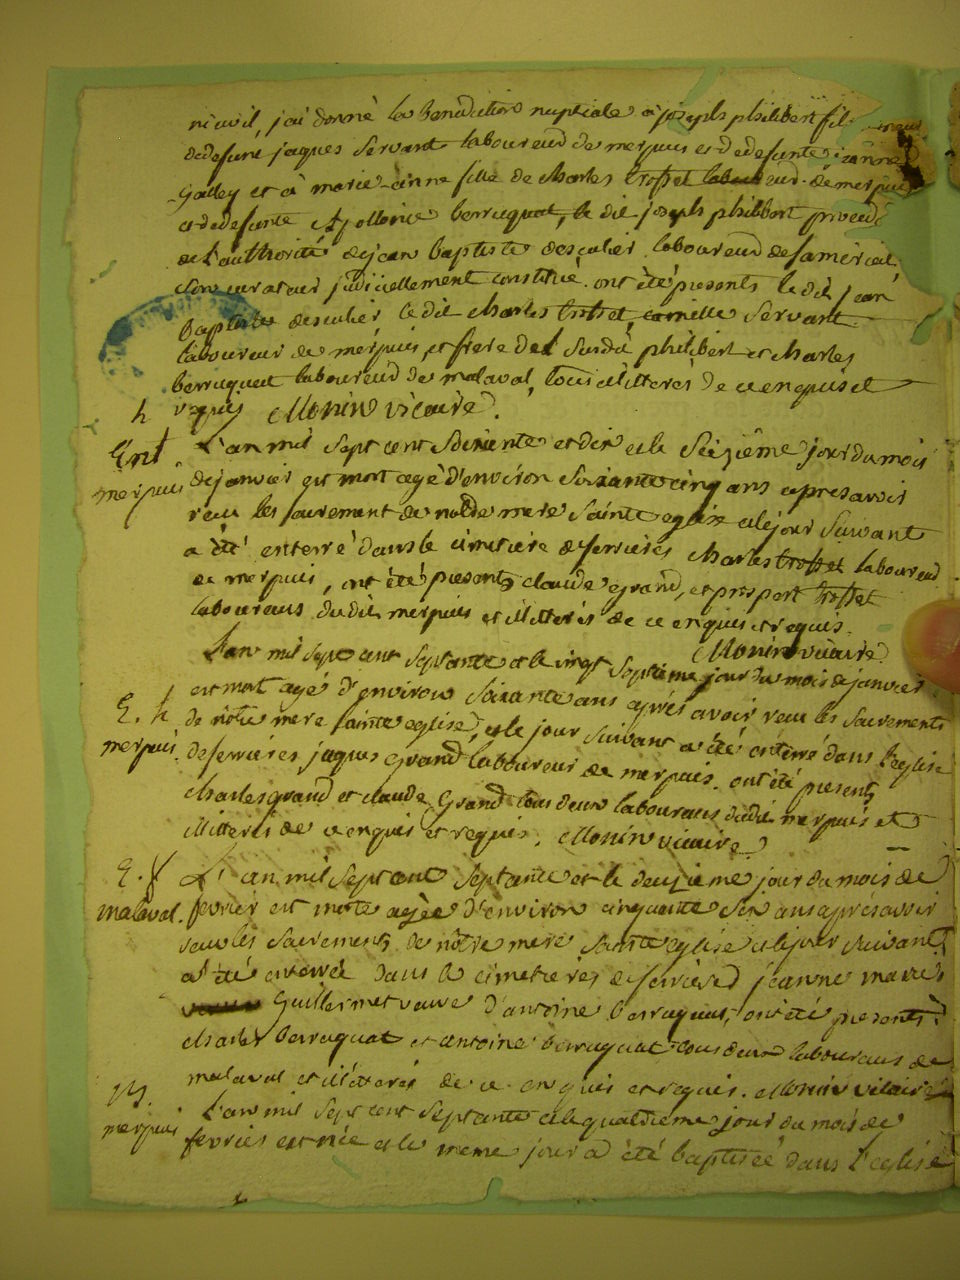 ni civil, j'ai donné la Benediction nuptiale à joseph philibert fils
de defunt jaques Servant laboureur de merpuis et de defunte jeanne
Galley et à marie-anne fille de Charles trosset laboureur de merpuis
et de defunte Apollonie berruquat, le dit joseph philibert
de l'authorité de jean baptiste descalier laboureur de
son curateur judiciellement constitué. ont été presents le dit jean
Baptiste descalier le dit charles trosset, Servant
laboureur de merpuis et frere del Susdit philibert et charles
berruquat laboureur de malaval, tous illitterés de ce enquis et
requis Monin vicaire.
h
Ent
merpuis
L'an mil Sept cent Soixante et dix et le Seizième jour du mois
de janvier est mort agé d'environ Soixante cinq ans apres avoir
receu les sacrement de notre mere Sainte eglise et le jour Suivant
a été enterré dans le cimetiere de ferrières charles trosset laboureur
de merpuis, ont été presents claude grand, et prospert trosset
laboureurs dudit merpuis et illitterés de ce enquis et requis.
Monin vicaire
L'an mil Sept cent Septante et le vingt Septieme jour du mois de janvier
E. h
merpuis.
est mort agé d'environ Soixante ans après avoir receu les Sacrements
de notre mere Sainte eglise, et le jour Suivant a été enterré dans l'eglise
de ferrières jaques grand laboureur de merpuis. ont été presents
charles grand et claude Grand tous deux laboureurs dudit merpuis et
illitterés de ce enquis et requis. Monin vicaire
E. f
malaval.
L'an mil Sept cent Septante et le deuzieme jour du mois de
fevrier est morte agée d'environ cinquante Six ans apres avoir
receu les Sacrements de nôtre mere Sainte eglise et le jour Suivant
a été enterrée dans le cimetieres de ferrieres jeanne marie
Guillermet veuve d'antoine berruquat, ont été presents
charles berruquat et antoine berruquat tous deux laboureurs de
malaval et illitterés de ce enquis et requis. Monin vicaire
B.
merpuis
L'an mil Sept cent Septante et le quatrieme jour du mois de
fevrier est née et le meme jour a été baptisée dans l'eglise